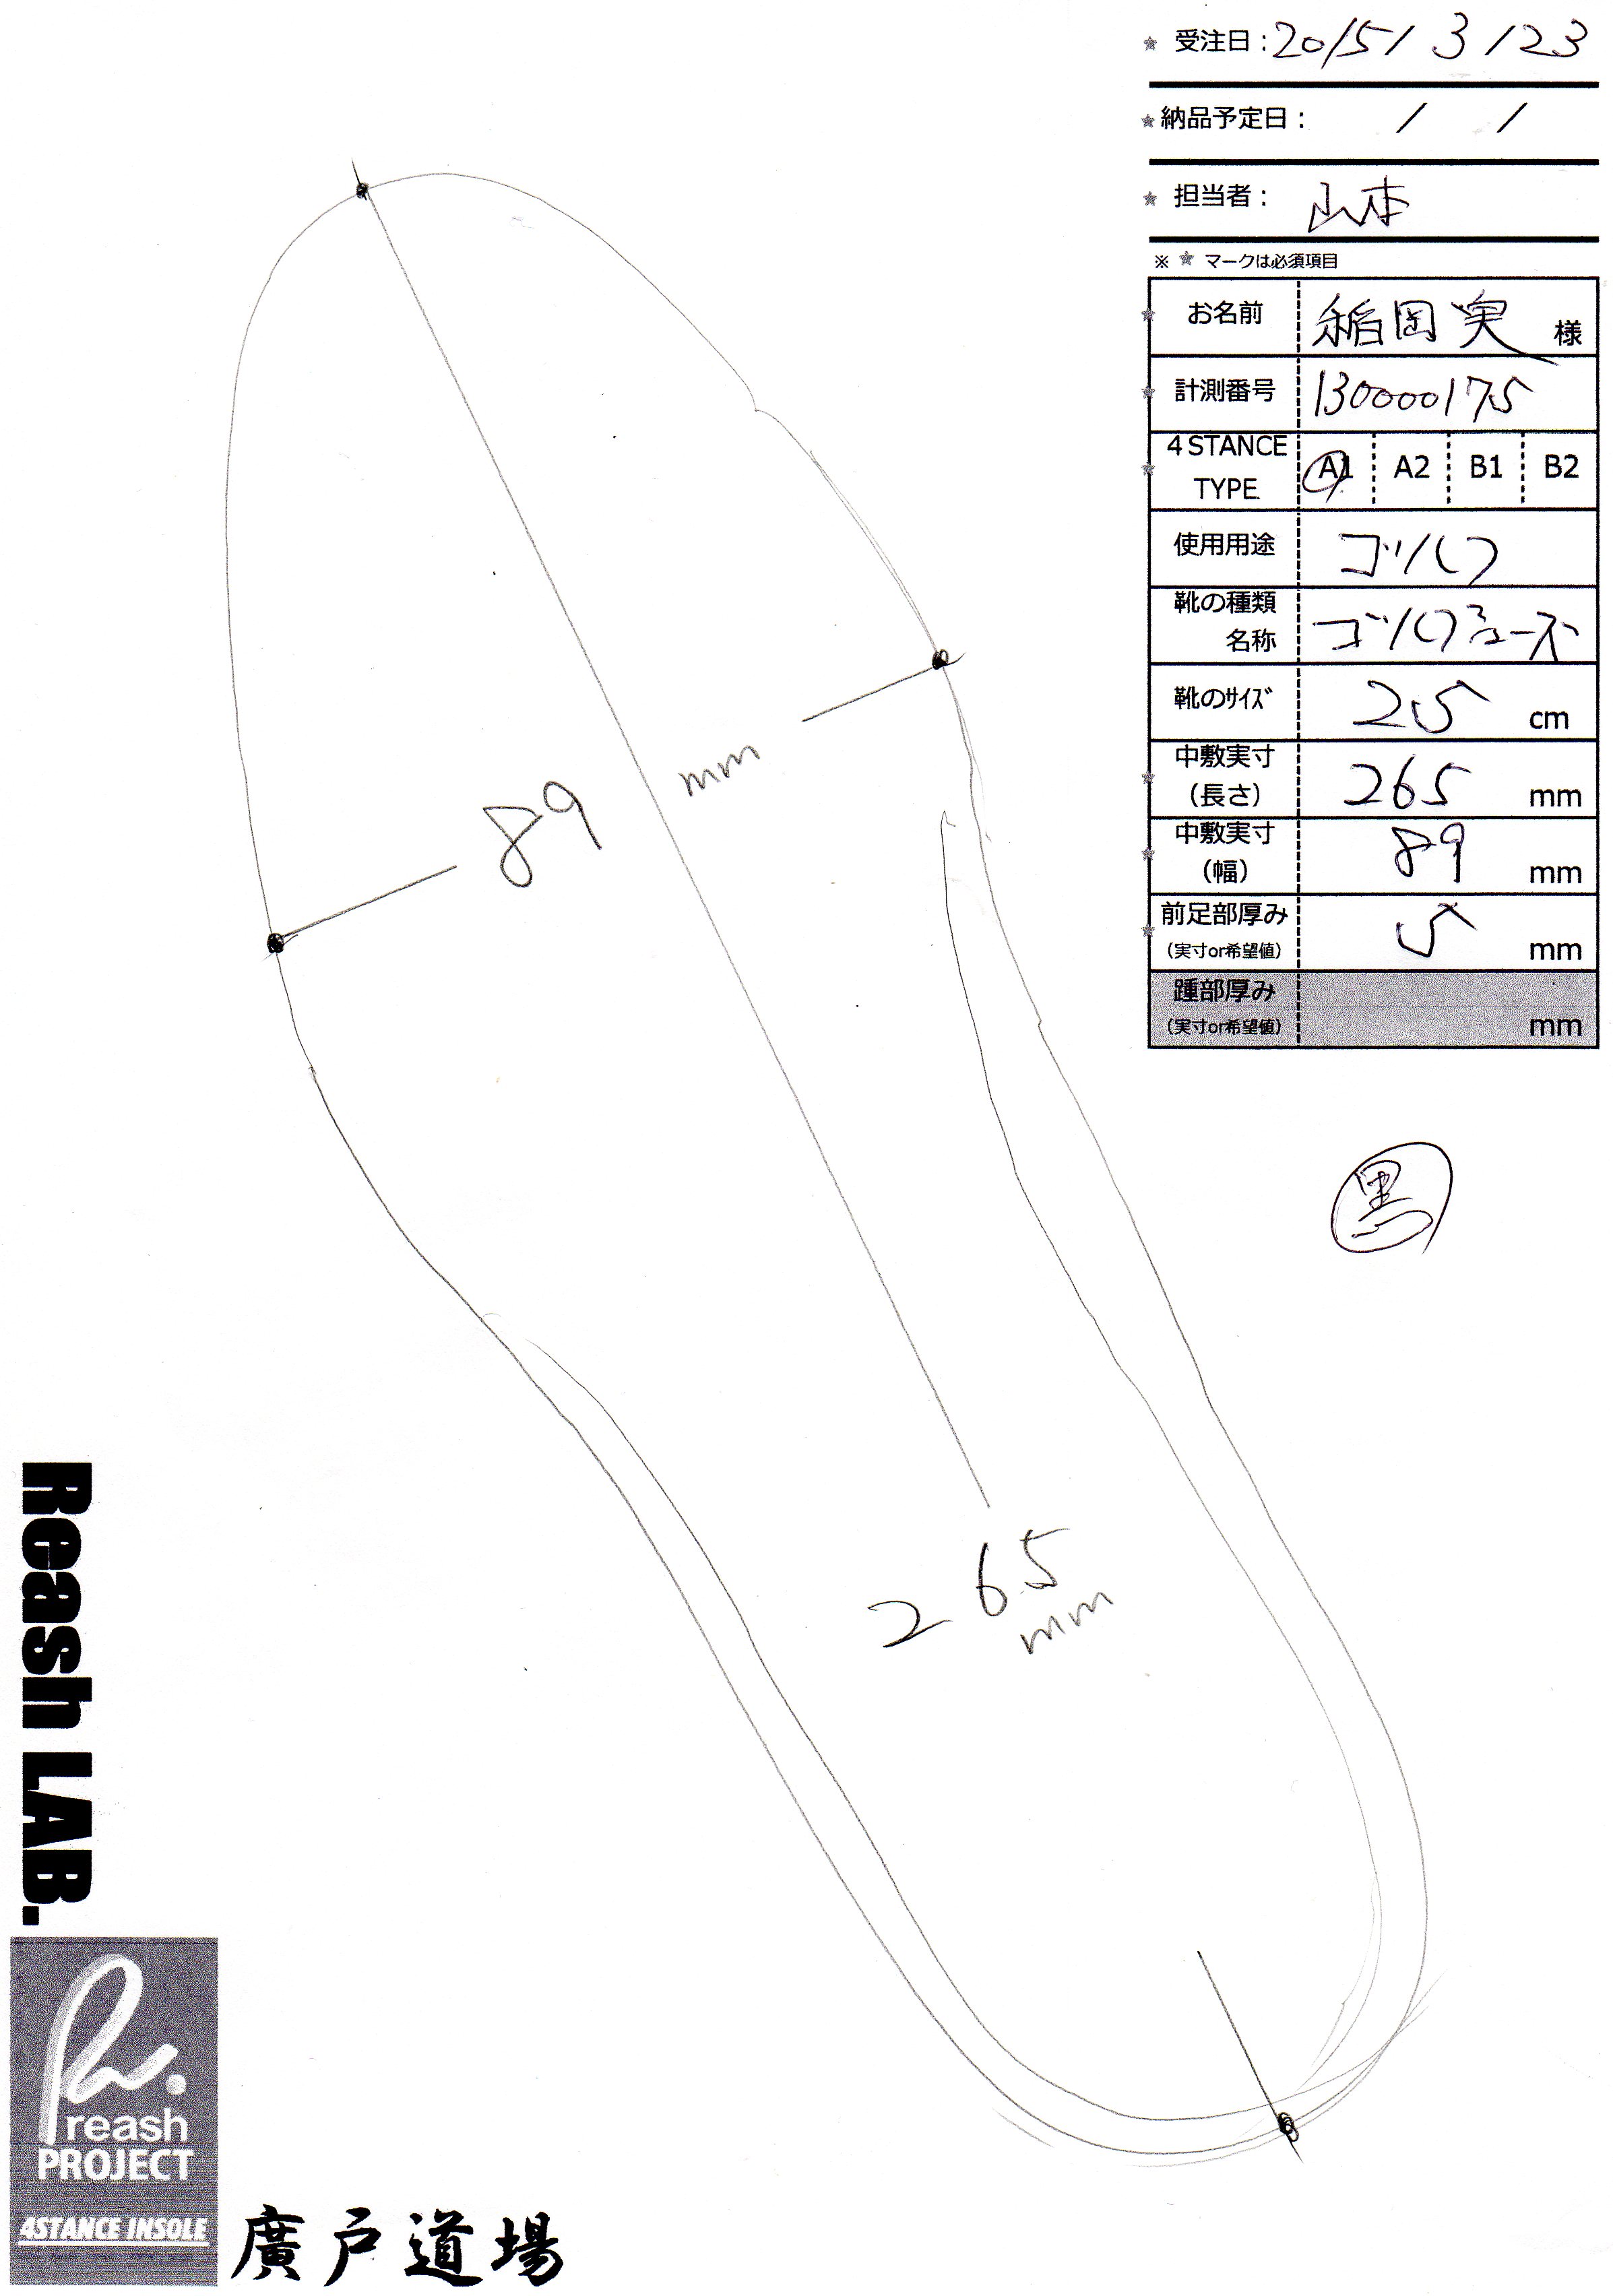 ★ 受注日:2015/ 3 /23
★ 納品予定日: / /
★ 担当者: 山本
※ ★ マークは必須項目
★ お名前 稲岡 実 様
★ 計測番号 130000175
★ 4 STANCE TYPE. A1 A2 B1 B2
使用用途 ゴルフ
靴の種類 名称 ゴルフシューズ
靴のサイズ 25 cm
★ 中敷実寸 (長さ) 265 mm
★ 中敷実寸 (幅) 89 mm
★ 前足部厚み (実寸or希望値) 5 mm
踵部厚み (実寸or希望値) mm
黒
89 mm
265 mm
Reash LAB.
R.
reash
PROJECT
4STANCE INSOLE
廣戸道場